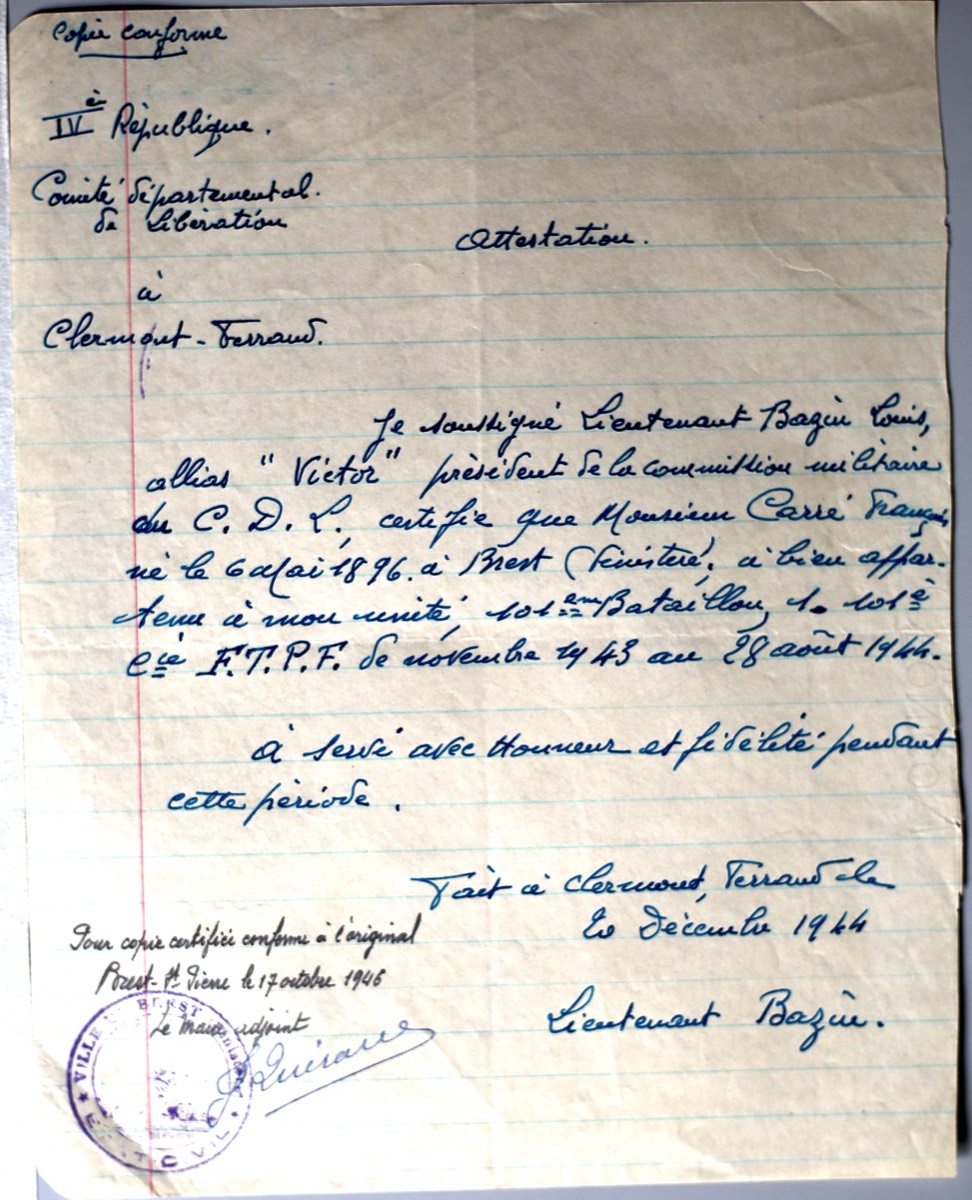 Copie conforme
IVè République.
Comité départemental.
de Libération
Attestation.
à
Clermont-Ferrand.
Je soussigné Lieutenant Bazin Louis,
allias "Victor" président de la commission militaire
du C. D. L., certifie que Monsieur Carré François
né le 6 Mai 1896. à Brest (Finistère, à bien appar-
tenu à mon unité, 101ème Bataillon, 1. 101è
Cie F.T.P.F. de novembre 1943 au 28 août 1944.
à servi avec Honneur et fidélité pendant
cette période.
Fait à Clermont, Ferrand le
20 Décembre 1944
Pour copie certifiée conforme à l'original
Brest-St Pierre le 17 octobre 1946
Le Maire adjoint
Lieutenant Bazin.
VILLE BREST
ETAT CIVIL